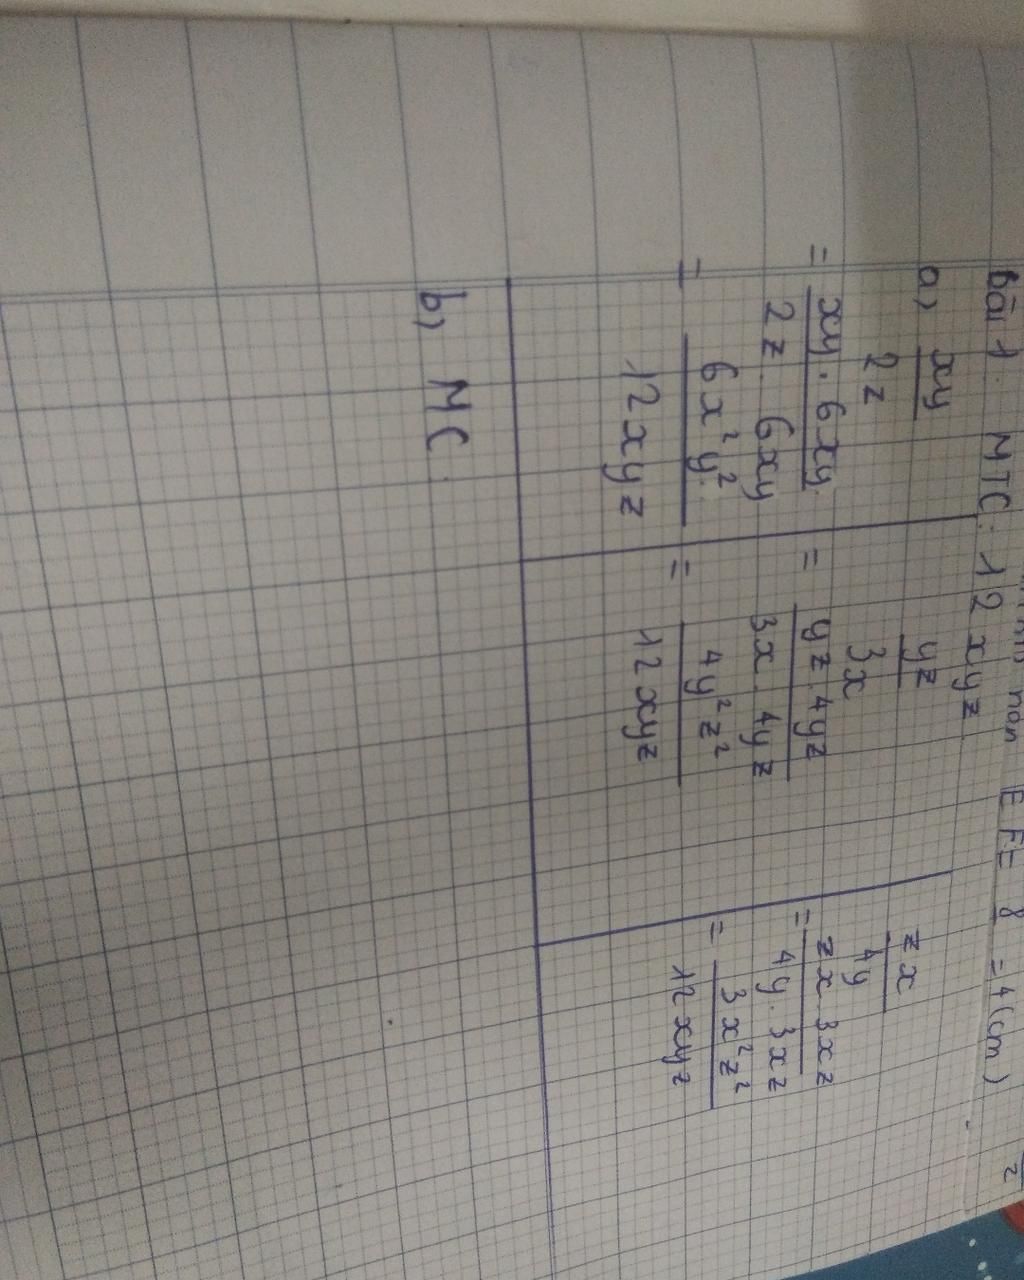 EF = 8 = 4 (cm)
2
Bài 1. MTC: 12xyz
a) xy
2z
= xy. 6xy
2z. 6xy
= 6x²y²
12xyz
yz
3x
= yz. 4yz
3x. 4yz
= 4y²z²
12xyz
zx
4y
= zx. 3xz
4y. 3xz
= 3x²z²
12xyz
b) MC